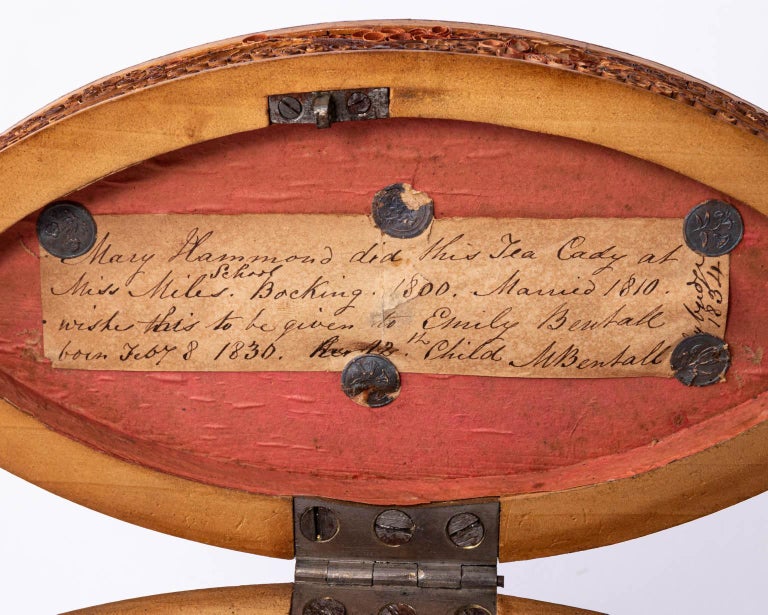 Mary Hammond did this Tea Cady at
School
Miss Miles. Bocking. 1800. Married 1810.
wishes this to be given to Emily Bentall
born Feby 8 1830. Her 12th Child M Bentall
1834